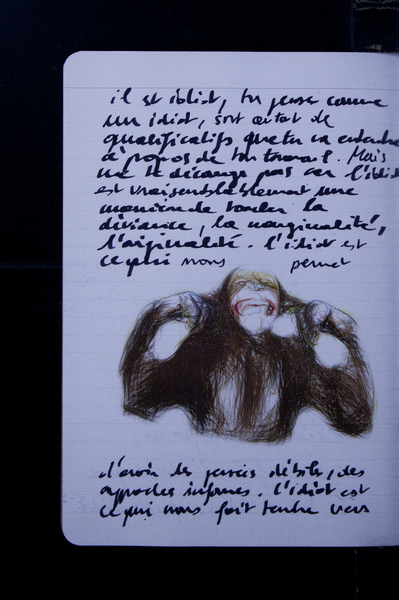 il est idiot, tu penses comme
un idiot, sont autant de
qualificatifs que tu va entendre
à propos de ton travail. Mais
ne te dérange pas car l'idiot
est vraisemblablement une
manière de border la
déviance, la marginalité,
l'originalité. l'idiot est
ce qui nous permet
d'avoir des pensées débiles, des
approches informes. l'idiot est
ce qui nous fait tendre vers